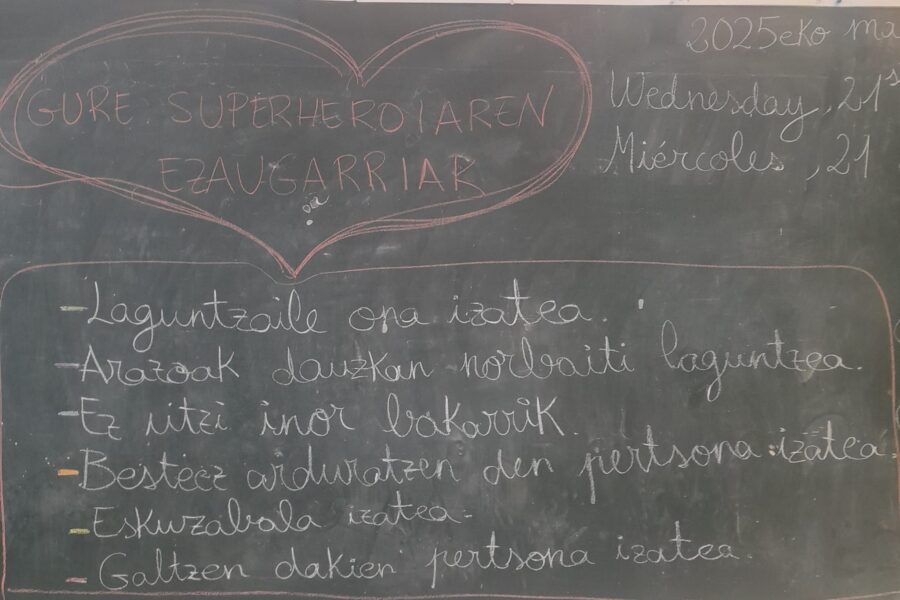 2025eko ma
Wednesday, 21s
Miércoles, 21
GURE SUPERHEROIAREN
EZAUGARRIAK
- Laguntzaile ona izatea.
- Arazoak dauzkan norbaiti laguntzea.
- Ez utzi inor bakarrik.
- Besteez arduratzen den pertsona izatea.
- Eskuzabala izatea.
- Galtzen dakien pertsona izatea.